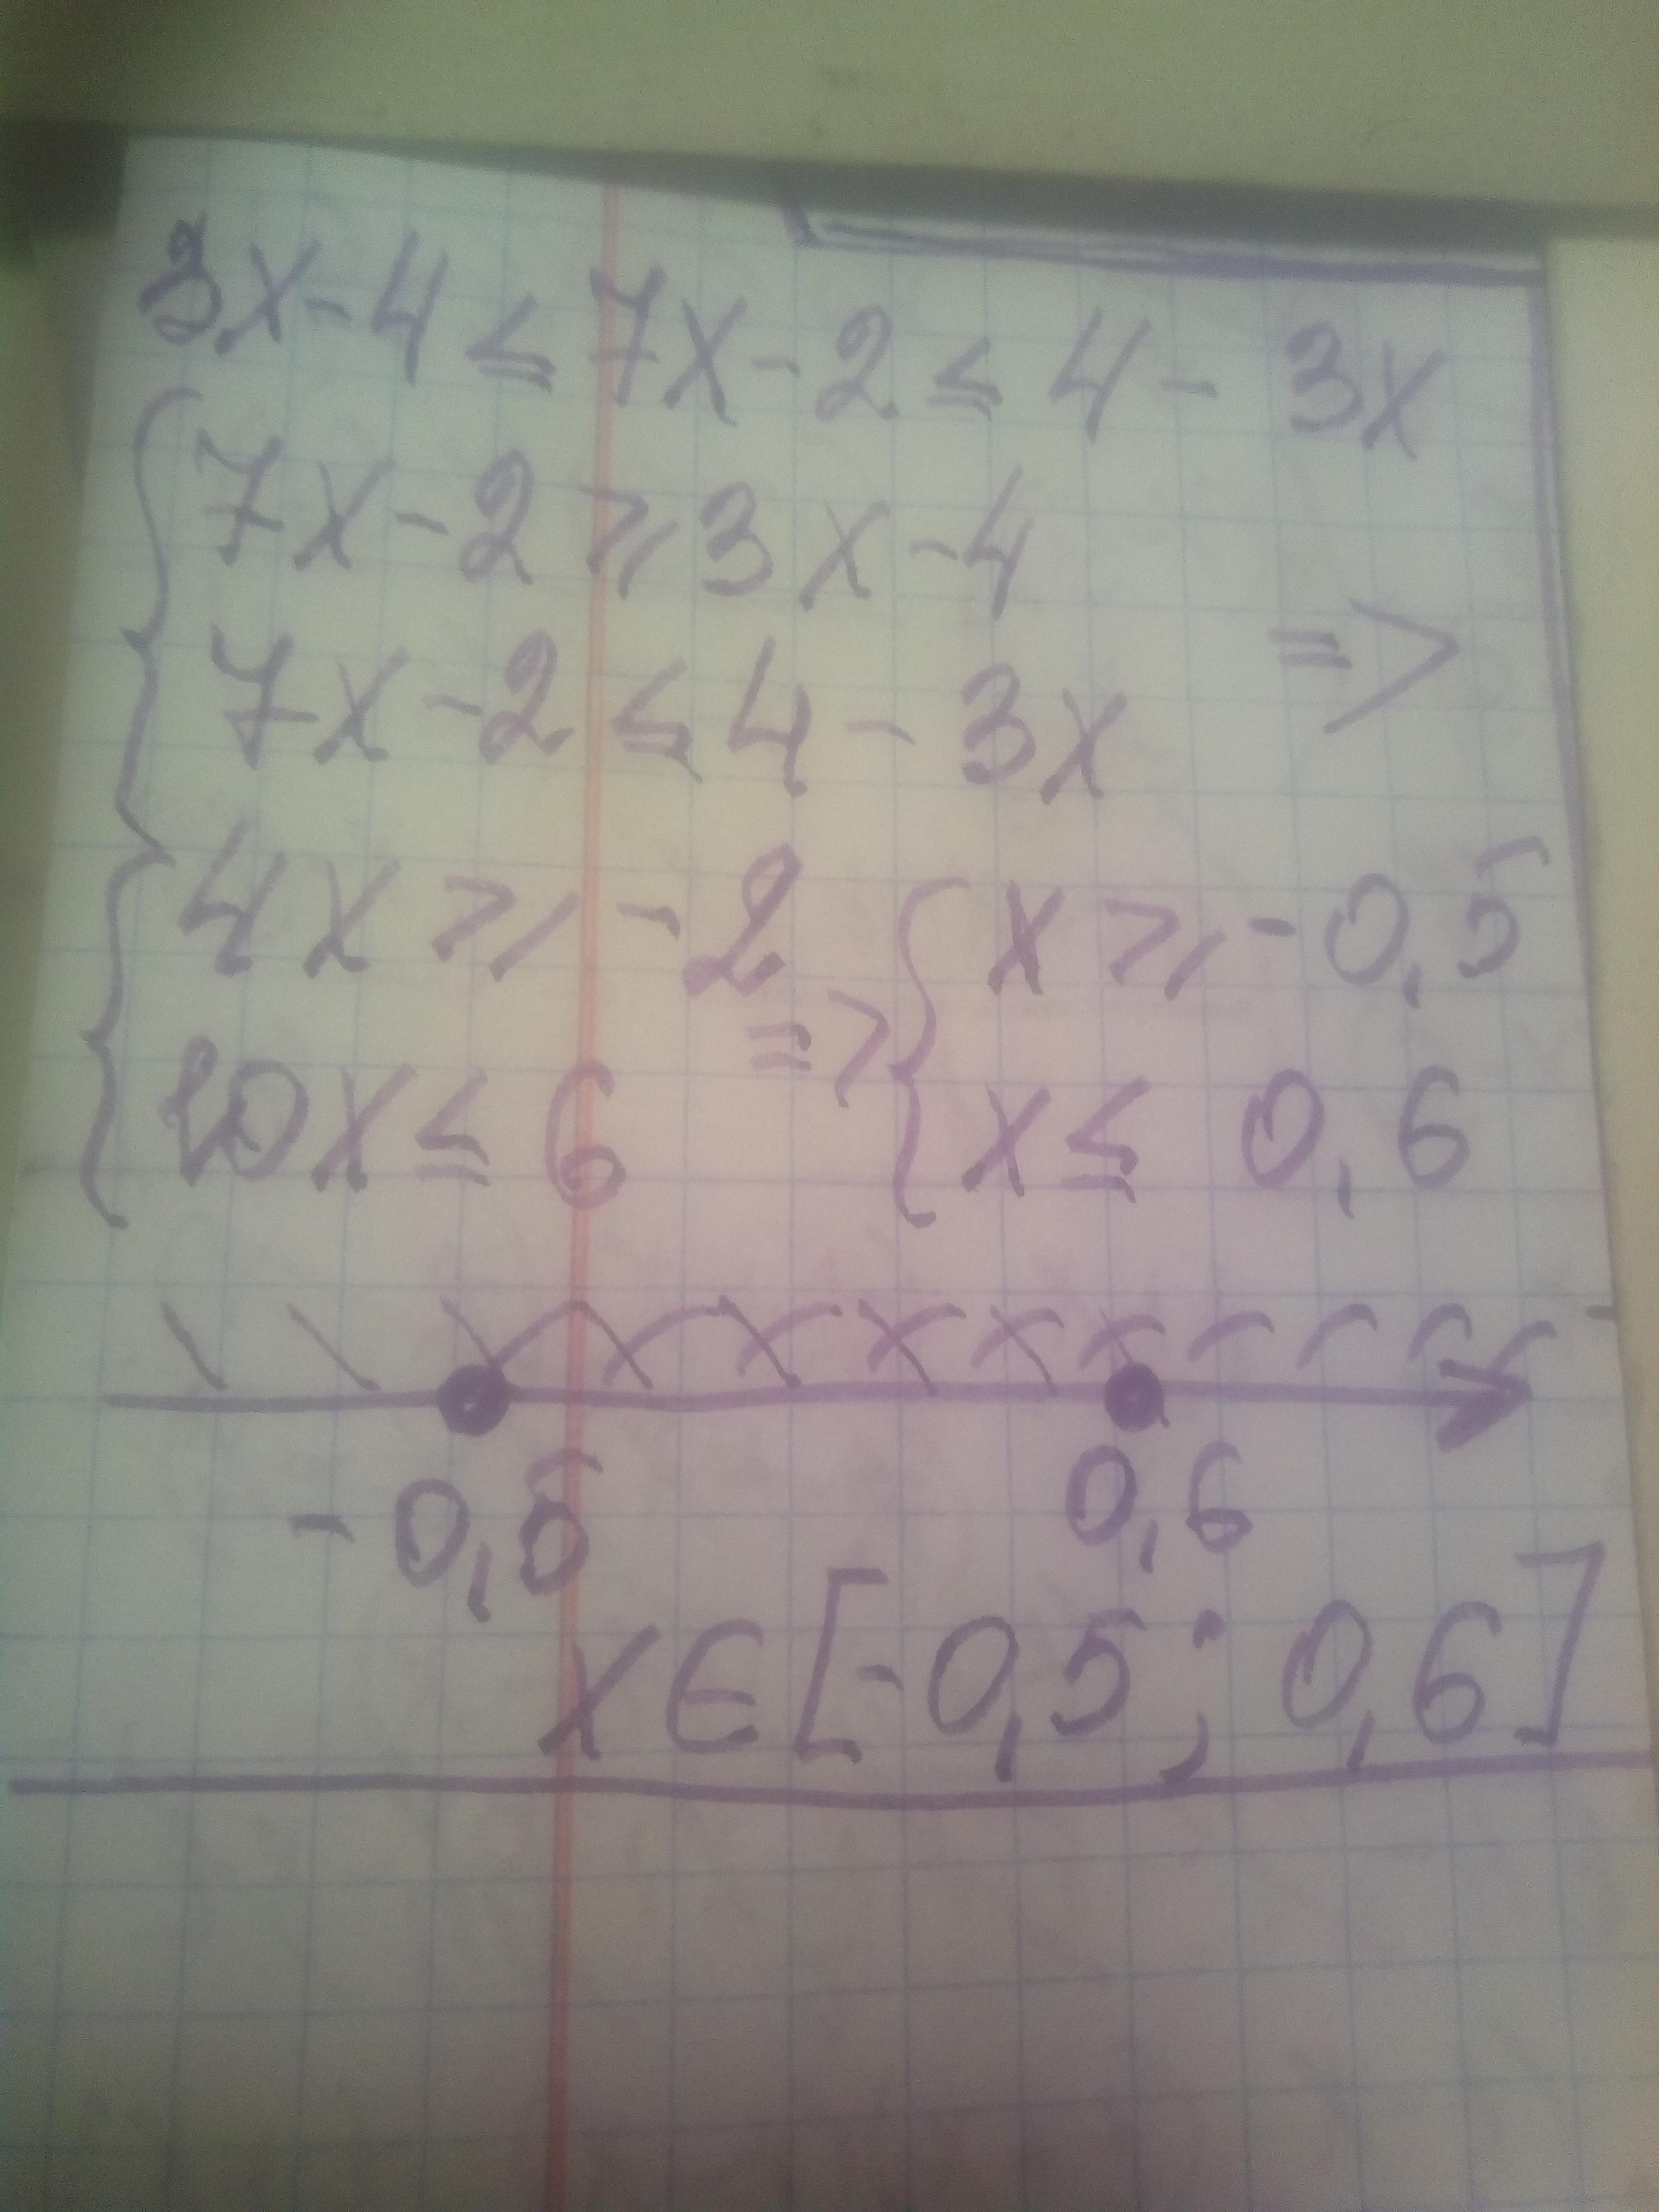 3x-4≤7x-2≤4-3x
{7x-2≥3x-4
7x-2≤4-3x =>
{4x≥-2 => {x≥-0,5
10x≤6 x≤0,6
-0,5 0,6
x∈[-0,5; 0,6]